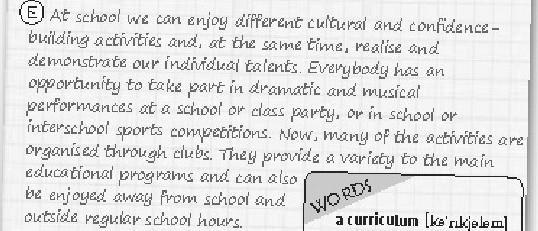 E At school we can enjoy different cultural and confidence-
building activities and, at the same time, realise and
demonstrate our individual talents. Everybody has an
opportunity to take part in dramatic and musical
performances at a school or class party, or in school or
interschool sports competitions. Now, many of the activities are
organised through clubs. They provide a variety to the main
educational programs and can also
be enjoyed away from school and
outside regular school hours.
WORDS
a curriculum [kə'rɪkjələm]